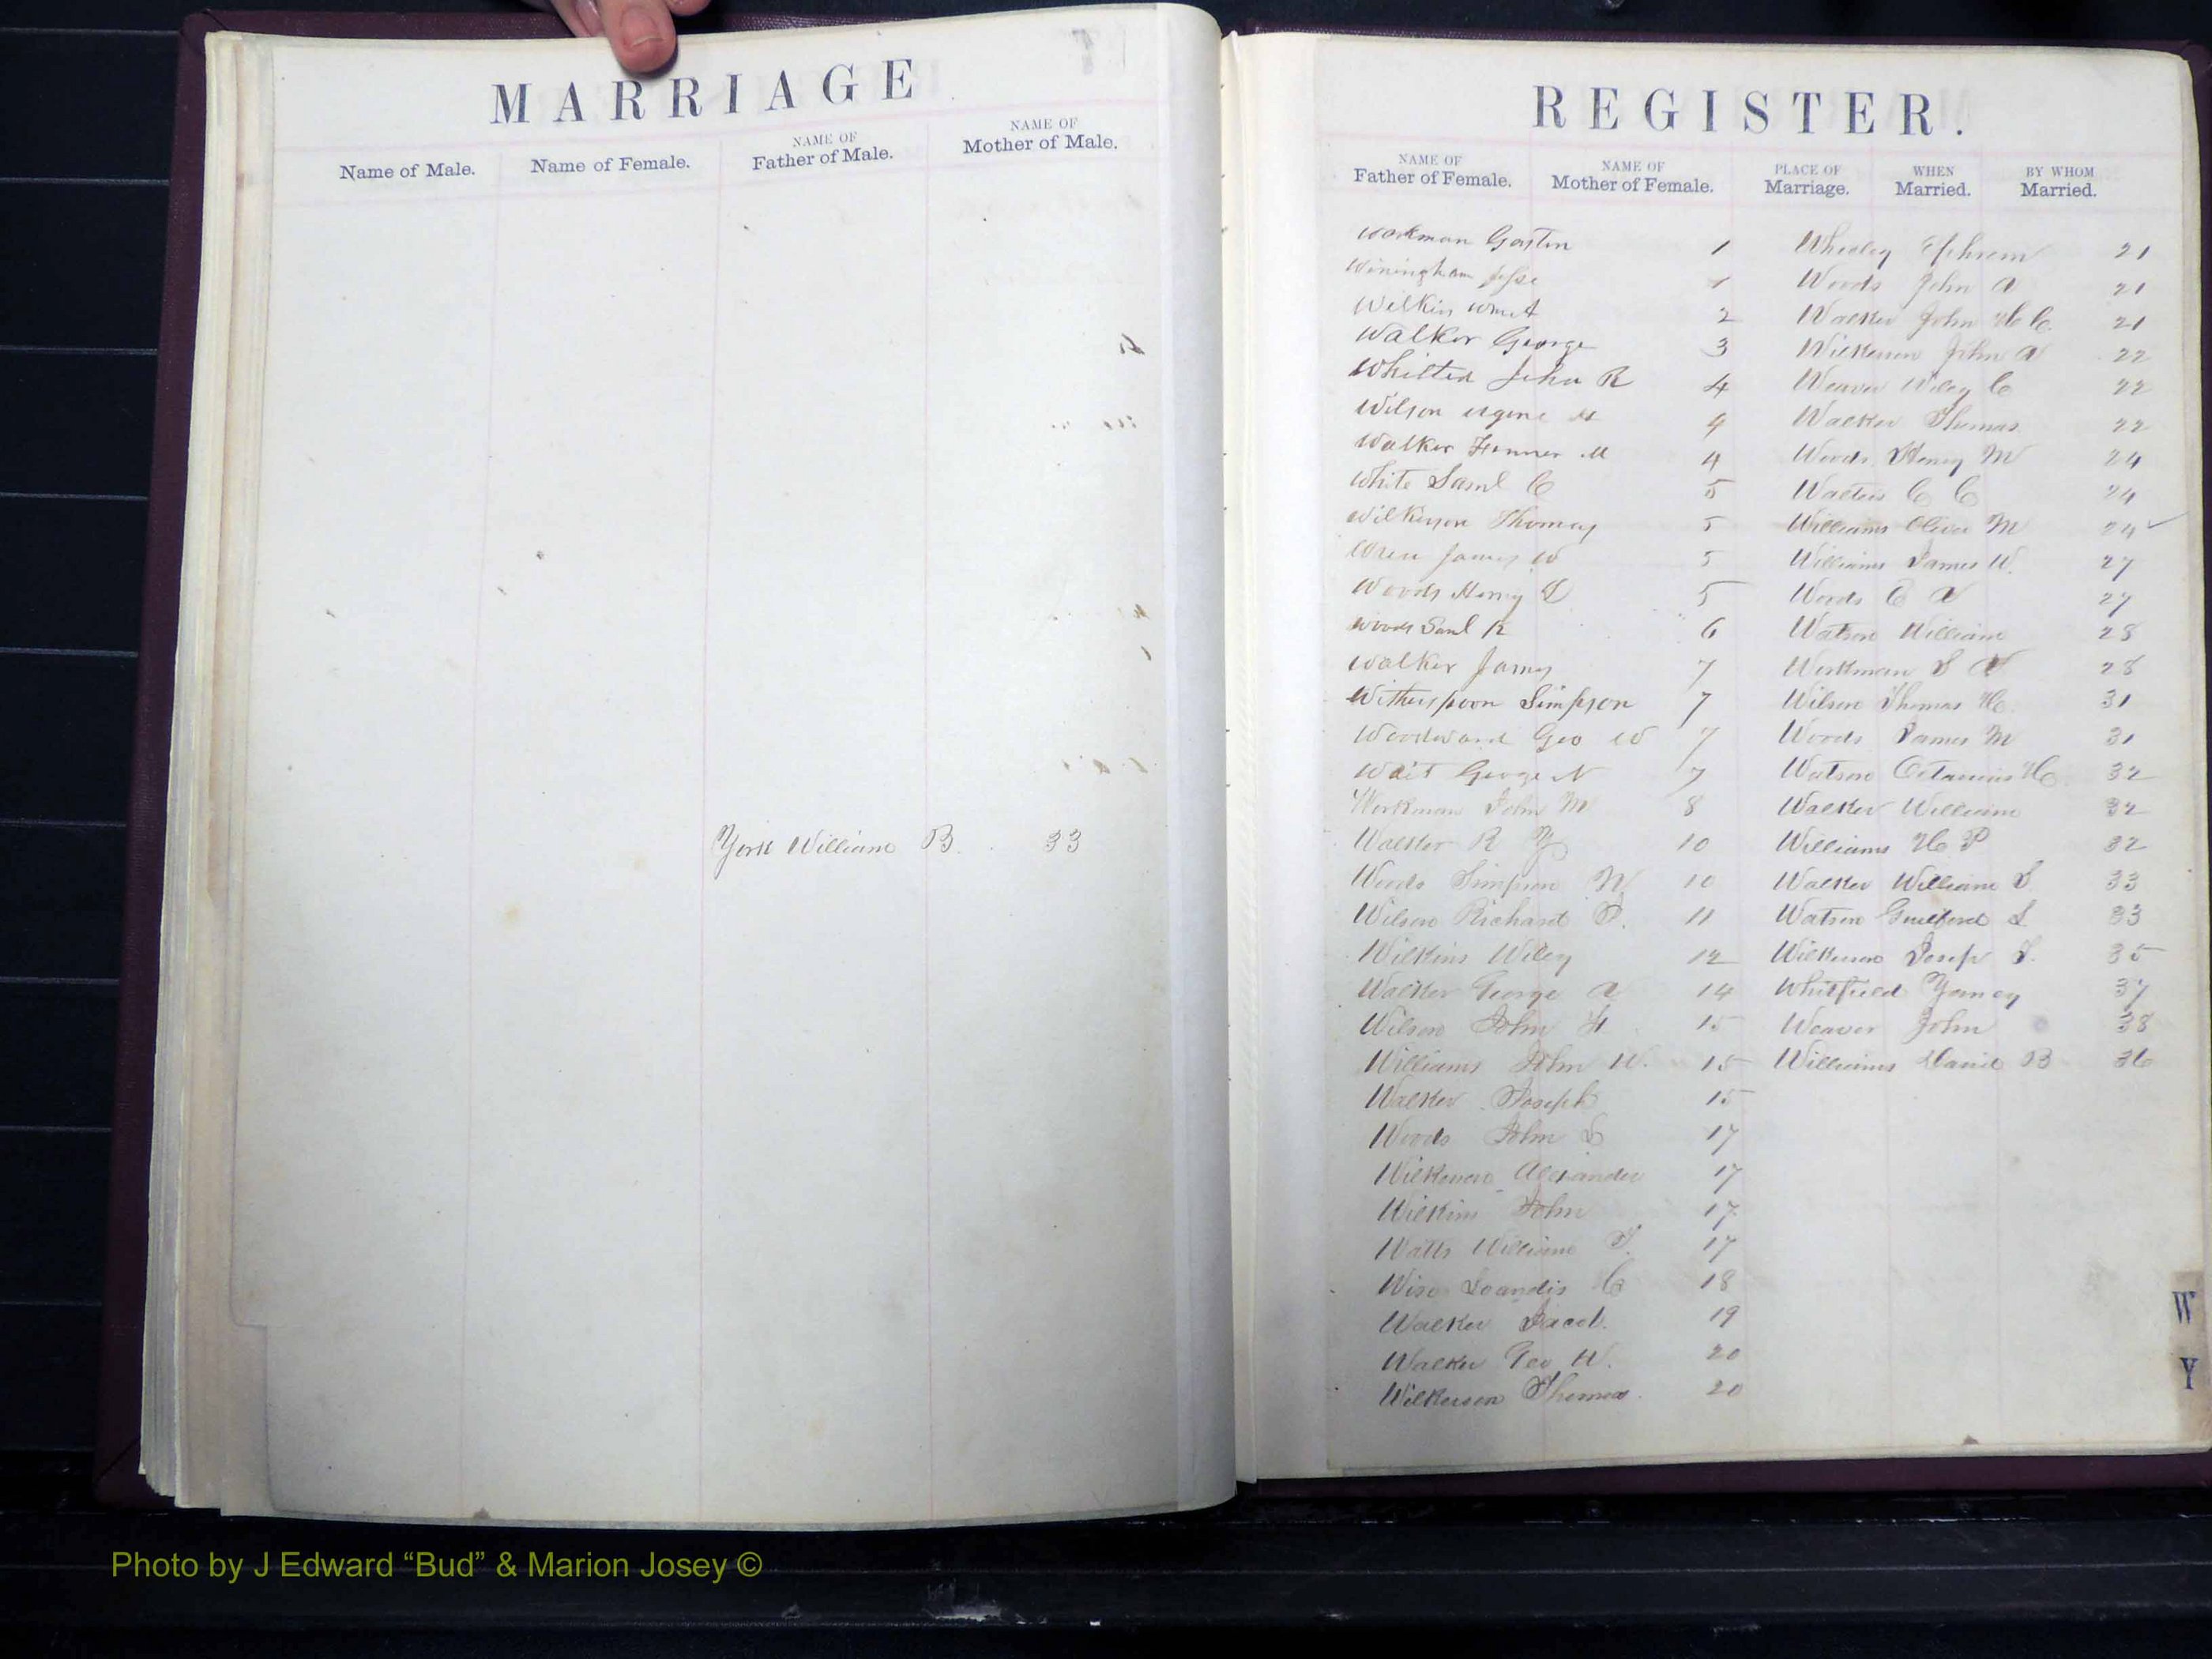 MARRIAGE
Name of Male.
Name of Female.
NAME OF
Father of Male.
NAME OF
Mother of Male.
York William B. 33
REGISTER.
NAME OF
Father of Female.
NAME OF
Mother of Female.
PLACE OF
Marriage.
WHEN
Married.
BY WHOM
Married.
Workman Gaston 1
Winingham Jesse 1
Wilkins 2
Walker George 3
Whitted John R 4
Wilson 4
Walker 4
White Saml C 5
Wilkerson Thomas 5
Wren James W 5
Woods Henry D 5
Woods Saml R 6
Walker James 7
Witherspoon Simpson 7
Woodward Geo W 7
Wait George N 7
Workman John M 8
Walker R Y 10
Woods Simpson W 10
Wilson Richard P. 11
Wilkins Wiley 12
Walker George A 14
Wilson John H 15
Williams John W. 15
Walker Joseph 15
Woods John S 17
Wilkerson Alexander 17
Wilkins John 17
Watts William T. 17
Wise C 18
Walker Jacob. 19
Walker Geo W. 20
Wilkerson Thomas. 20
Wheeley Ephrem 21
Woods John A 21
Walker John H C. 21
Wilkerson John A 22
Weaver Wiley C 22
Walker Thomas 22
Woods Henry M 24
Walters C C 24
Williams Oliver M 24
Williams James W. 27
Woods C A 27
Watson William 28
Workman S A 28
Wilson Thomas H. 31
Woods James M 31
Watson Octavius H 32
Walker William 32
Williams H P 32
Walker William S. 33
Watson Guilford L 33
Wilkerson Josep S. 35
Whitfield Yancy 37
Weaver John 38
Williams David B 36
W
Y
Photo by J Edward “Bud” & Marion Josey ©